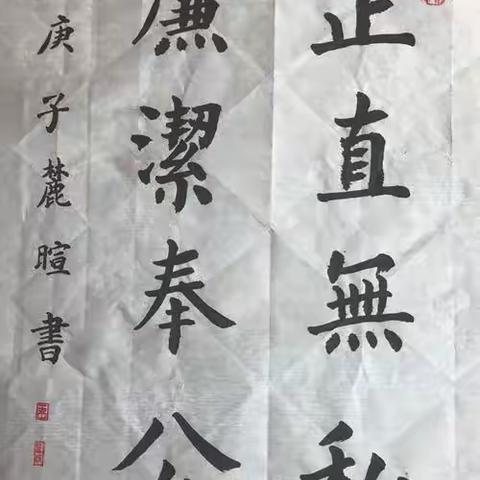 正直無私
廉潔奉公
庚子麓暄書